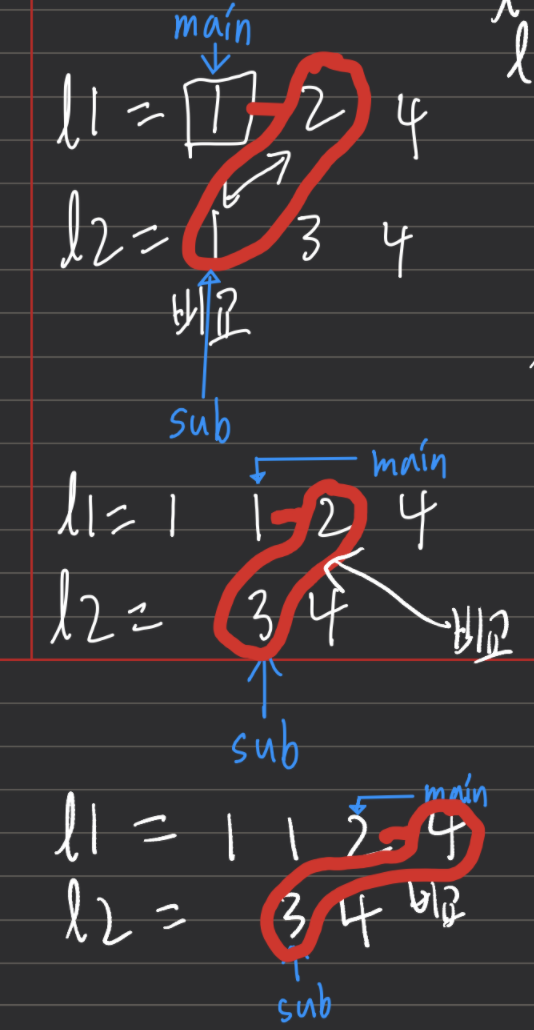 main
l1 = 1 2 4
l2 = 1 3 4
비교
sub
main
l1 = 1 1 2 4
l2 = 3 4
비교
sub
main
l1 = 1 1 2 4
l2 = 3 4 비교
sub